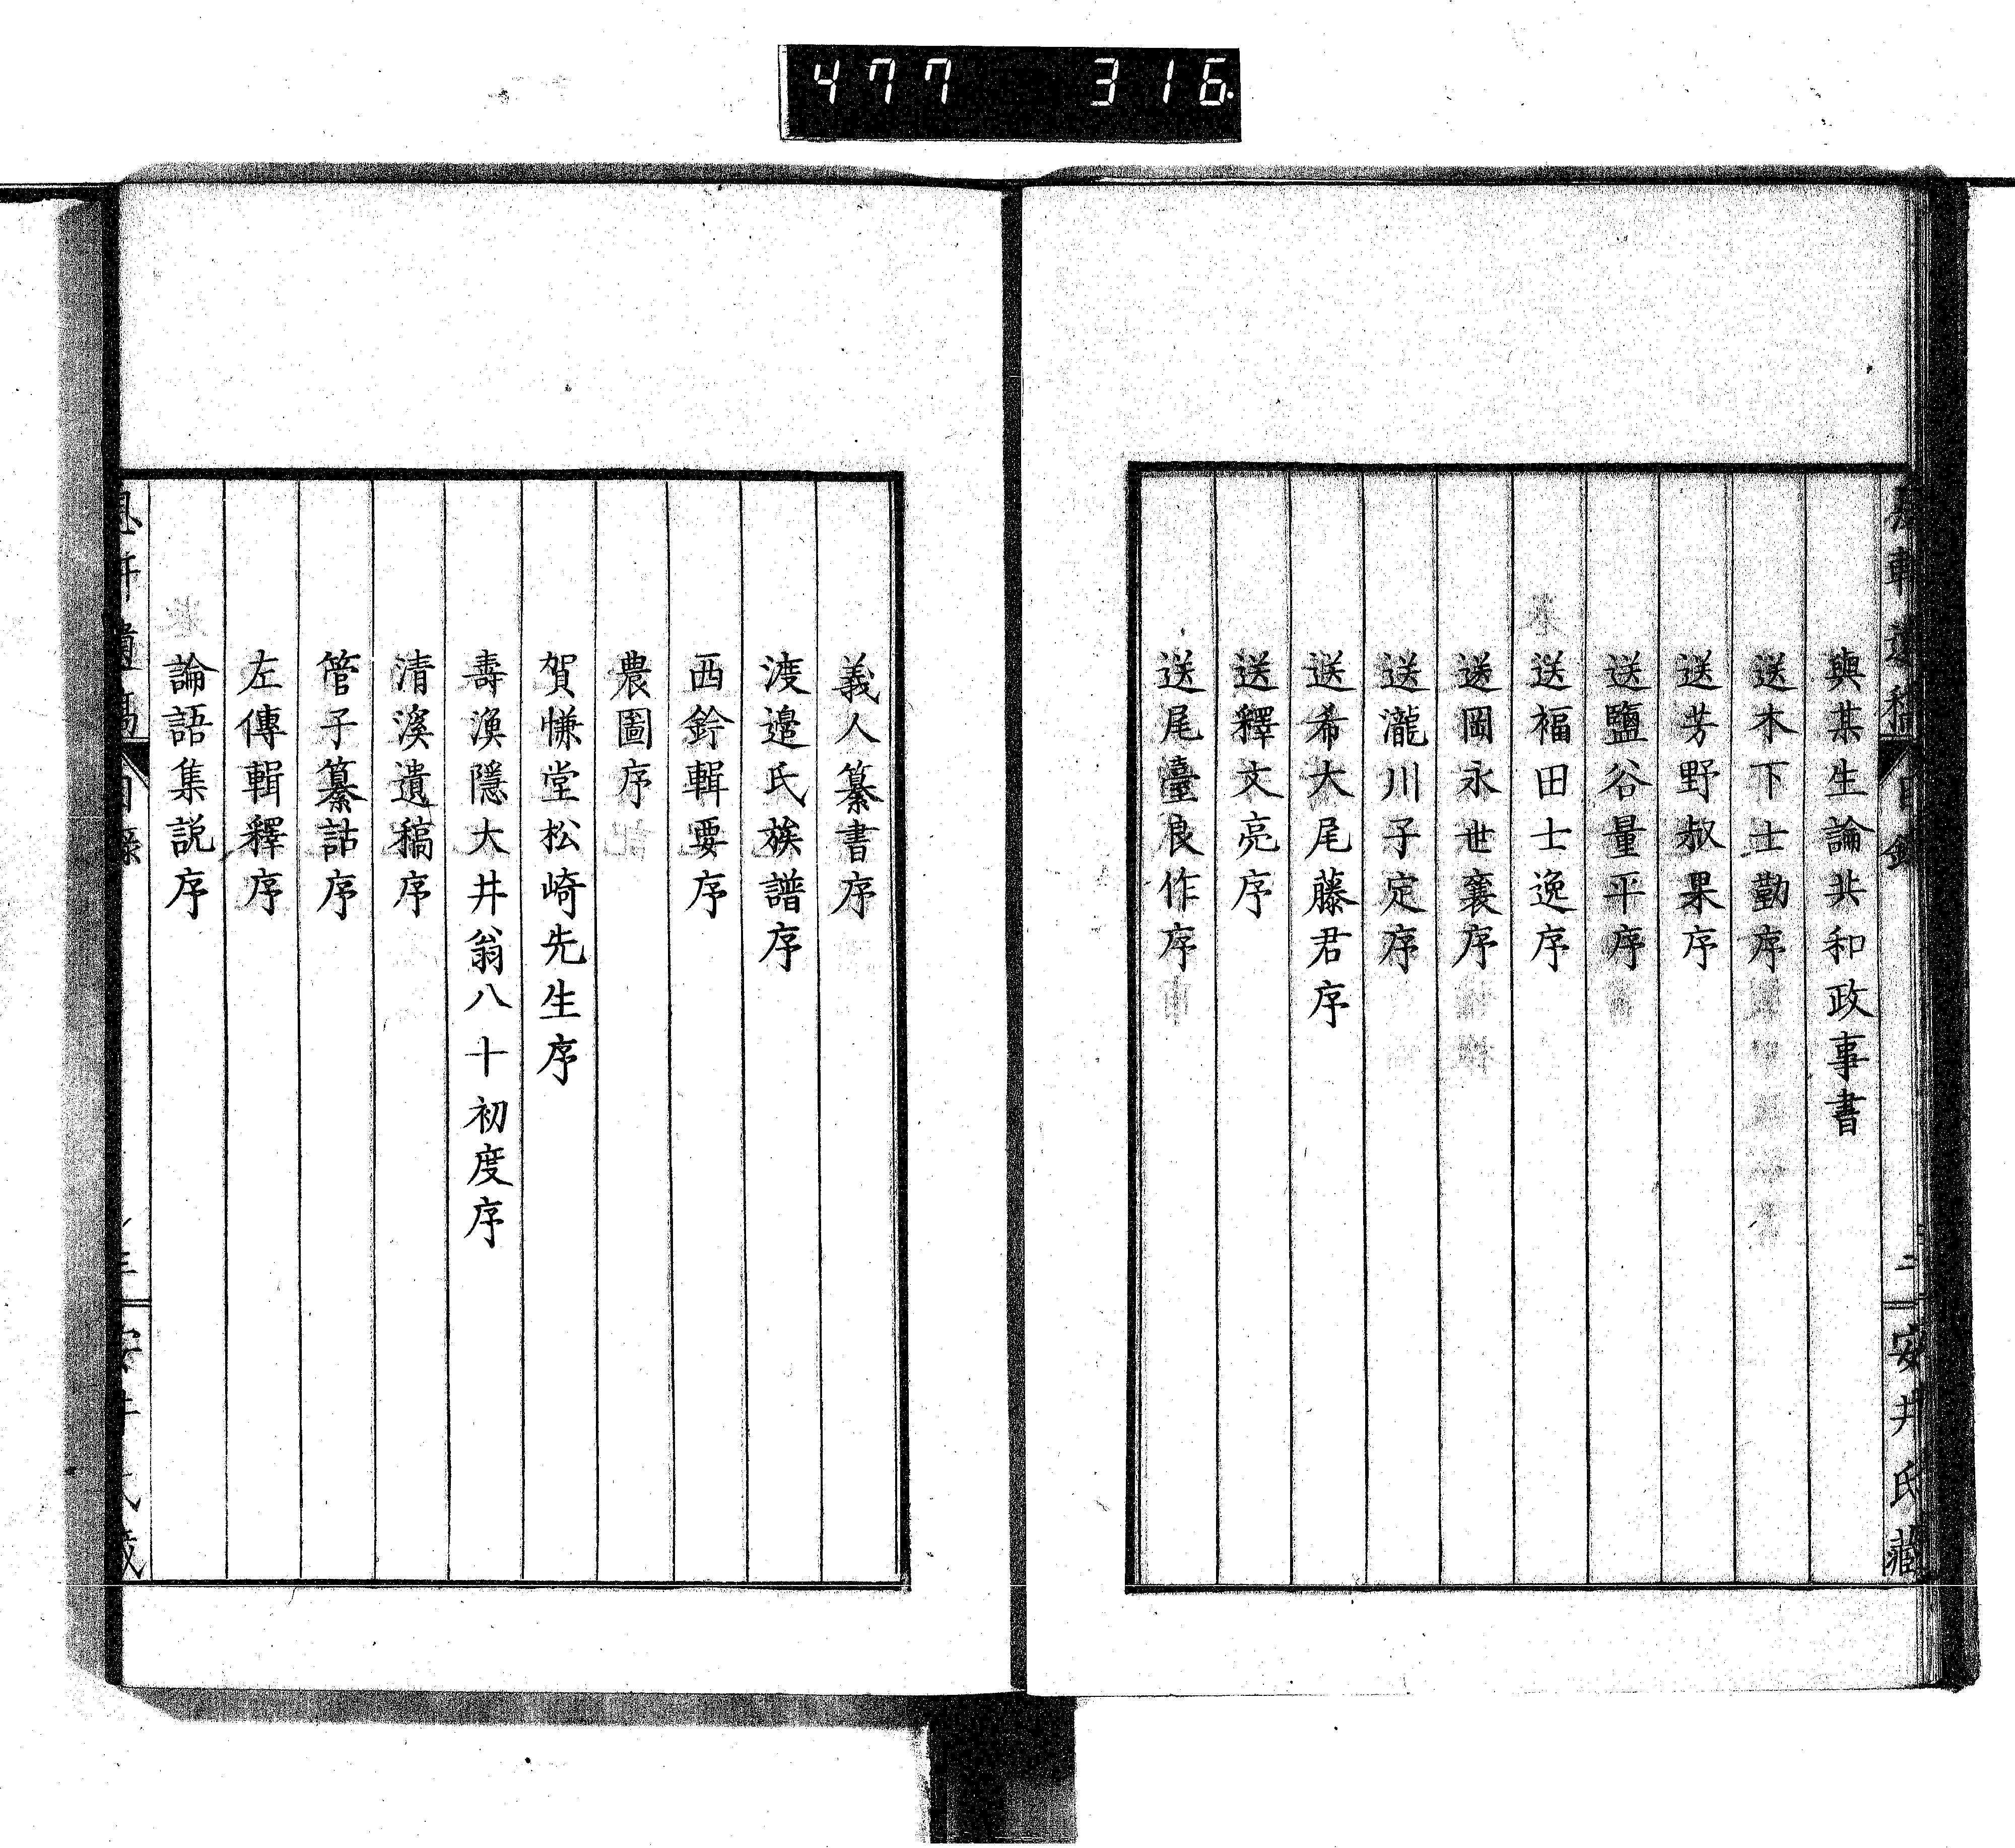 477 316
與某生論共和政事書
送木下士勤序
送芳野叔果序
送鹽谷量平序
送福田士逸序
送岡永世襄序
送瀧川子定序
送希大尾藤君序
送釋文亮序
送尾臺良作序
安井氏藏
義人纂書序
渡邉氏族譜序
西鈐輯要序
農圖序
賀慊堂松崎先生序
壽漁隱大井翁八十初度序
清溪遺稿序
管子纂詁序
左傳輯釋序
論語集説序